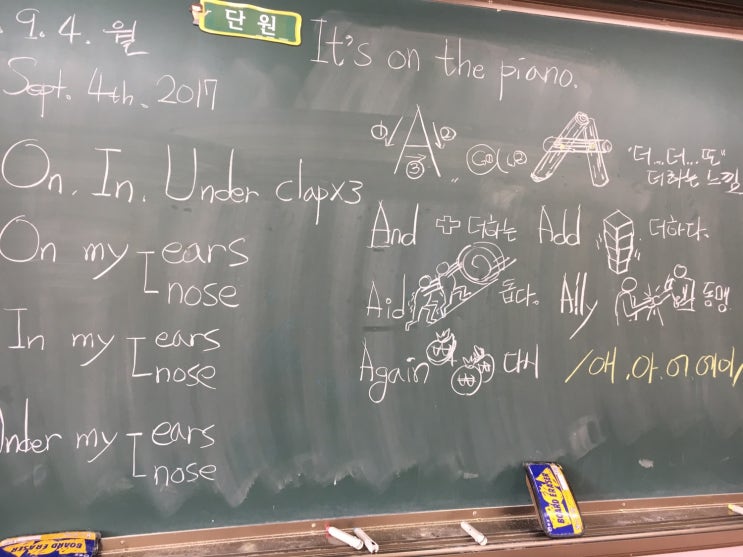 9. 4. 월
단원
It's on the piano.
Sept. 4th. 2017
On. In. Under clap×3
On my [ ears
nose
In my [ ears
nose
Under my [ ears
nose
① A ②
③
"더...더...또"
더하는 느낌
And + 더하는
Add 더하다.
Aid 돕다.
Ally 동맹
Again 다시
/애.아.어.에이/
BOARD ERASER
BOARD ERASER